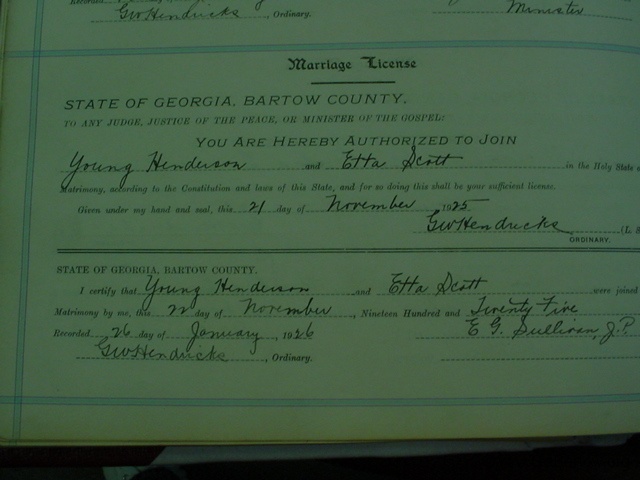 Recorded
GW Hendricks, Ordinary. Minister
Marriage License
STATE OF GEORGIA, BARTOW COUNTY.
TO ANY JUDGE, JUSTICE OF THE PEACE, OR MINISTER OF THE GOSPEL:
YOU ARE HEREBY AUTHORIZED TO JOIN
Young Henderson and Etta Scott in the Holy State
Matrimony, according to the Constitution and laws of this State, and for so doing this shall be your sufficient license.
Given under my hand and seal, this 21 day of November 1925
GW Hendricks (L. S
ORDINARY.
STATE OF GEORGIA, BARTOW COUNTY.
I certify that Young Henderson and Etta Scott were joined
Matrimony by me, this 22 day of November, Nineteen Hundred and Twenty Five
Recorded 26 day of January, 1926 E. G. Sullivan, J.P.
GW Hendricks, Ordinary.